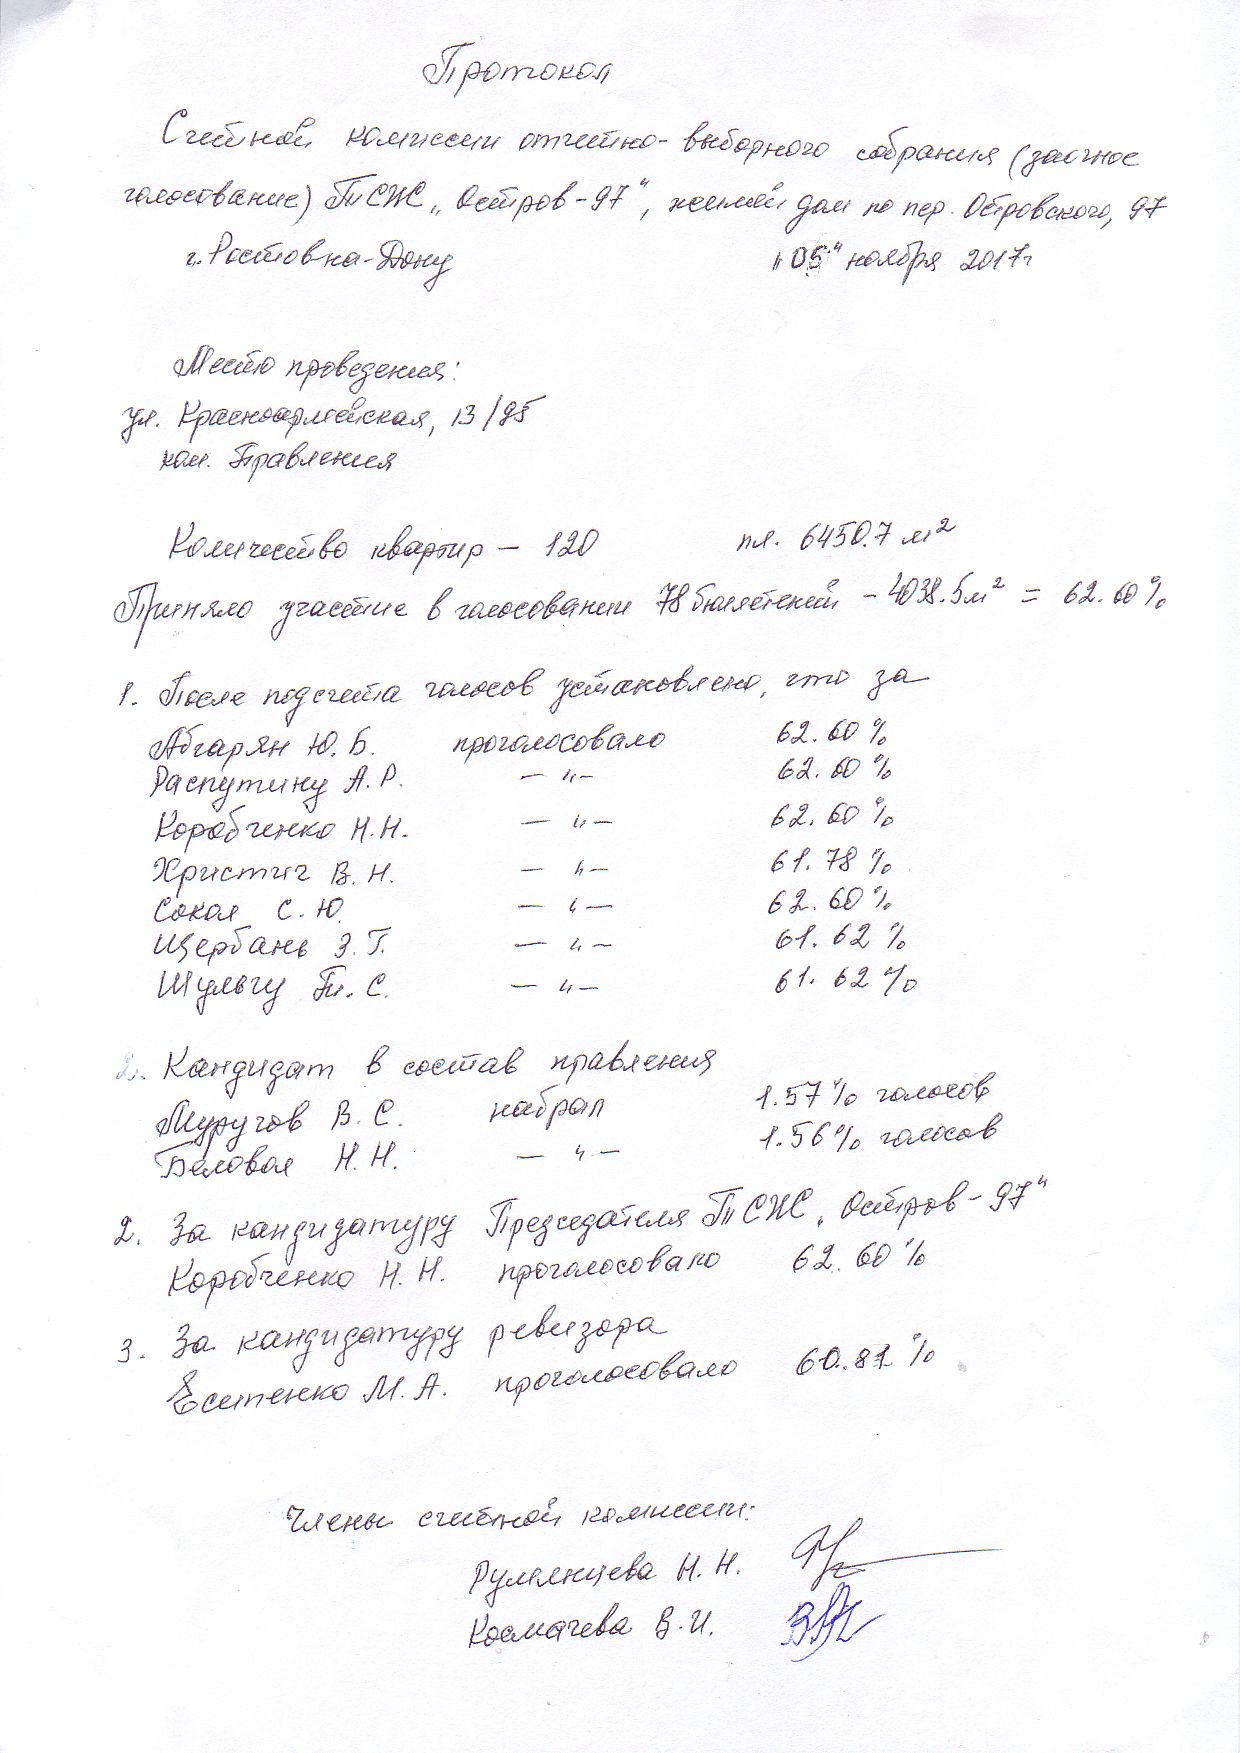 Протокол
Счетной комиссии отчетно-выборного собрания (заочное
голосование) ТСЖ „Остров-97“, жилой дом по пер. Островского, 97
г. Ростов на-Дону „05“ ноября 2017г
Место проведения:
ул. Красноармейская, 13/95
ком. Правления
Количество квартир – 120 пл. 6450.7 м²
Приняло участие в голосовании 78 бюллетеней – 4038.5м² = 62.60%
1. После подсчета голосов установлено, что за
Абгарян Ю.Б. проголосовало 62.60%
Распутину А.Р. —〃— 62.60%
Коробченко Н.Н. —〃— 62.60%
Христич В.Н. —〃— 61.78%
Сокол С.Ю. —〃— 62.60%
Щербань З.Г. —〃— 61.62%
Шульгу Т.С. —〃— 61.62%
2. Кандидат в состав правления
Муругов В.С. набрал 1.57% голосов
Беловол Н.Н. —〃— 1.56% голосов
2. За кандидатуру Председателя ТСЖ „Остров-97“
Коробченко Н.Н. проголосовало 62.60%
3. За кандидатуру ревизора
Есипенко М.А. проголосовало 60.81%
Члены счетной комиссии:
Румянцева Н.Н.
Космачева В.И.